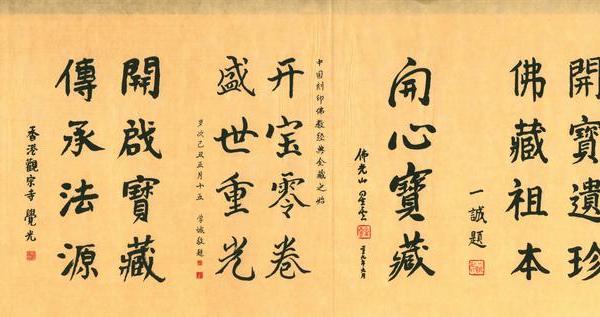 開寶遺珍
佛藏祖本
一誠題
開心寶藏
佛光山 星雲
中国刻印佛教经典全藏之始
开宝零卷
盛世重光
岁次己丑 月十五 学诚敬题
開啟寶藏
傳承法源
香港觀宗寺 覺光